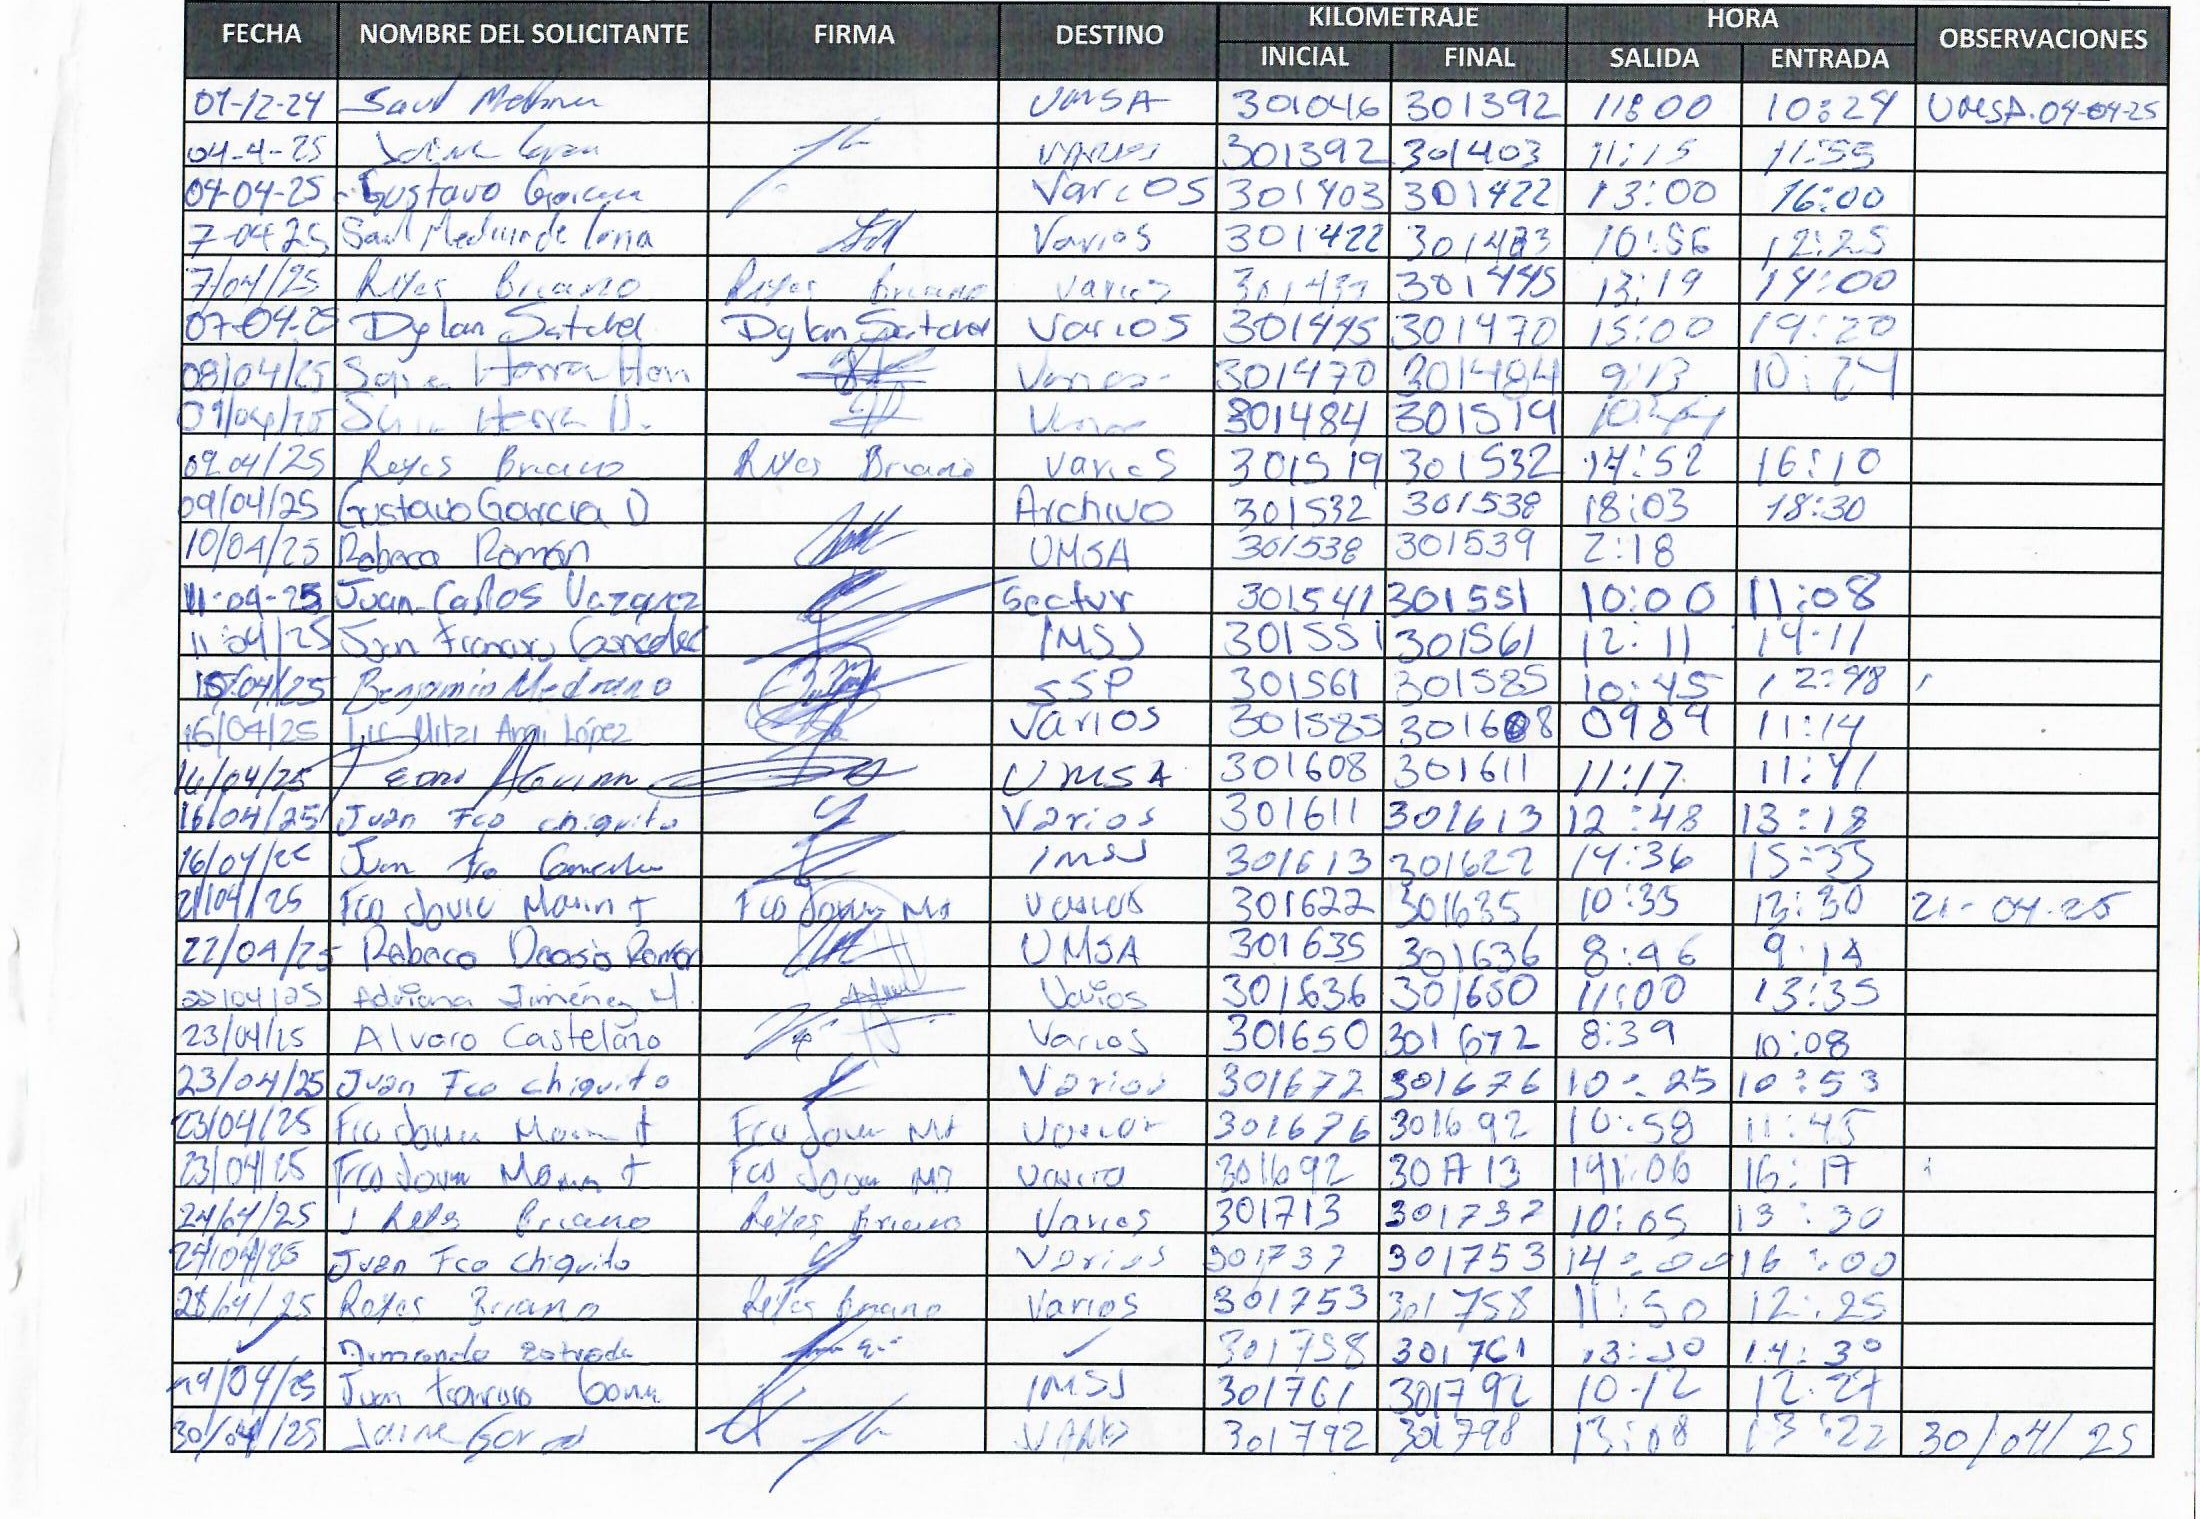 FECHA NOMBRE DEL SOLICITANTE FIRMA DESTINO KILOMETRAJE HORA OBSERVACIONES
INICIAL FINAL SALIDA ENTRADA
04-12-24 Saul Medina UMSA 301046 301392 11:00 10:24 UMSA.04-04-25
04-4-25 Jaime 301392 301403 11:15 11:55
04-04-25 Gustavo Garcia Varios 301403 301422 13:00 16:00
7-04-25 Saul Varios 301422 10:56 12:25
7/04/25 Reyes Briano Reyes Briano Varios 301445 13:19 14:00
07-04-25 Dylan Satchel Dylan Satchel Varios 301445 301470 15:00 19:20
08/04/25 Varios 301470 301484 9:13 10:24
09/04/25 301484 301519
09.04/25 Reyes Briano Reyes Briano Varios 301519 301532 14:52 16:10
09/04/25 Gustavo Garcia D Archivo 301532 301538 18:03 18:30
10/04/25 Rebeca Román UMSA 301538 301539 2:18
11-04-25 Juan Carlos Vazquez Sectur 301541 301551 10:00 11:08
11/04/25 Juan Francisco Gonzalez IMSS 301551 301561 12:11 14:11
15/04/25 Benjamin Medrano SSP 301561 301585 10:45 12:48
16/04/25 Lic Mitzi Angi López Varios 301585 301608 0984 11:14
16/04/25 UMSA 301608 301611 11:17 11:41
16/04/25 Juan Fco chiquito Varios 301611 301613 12:48 13:18
16/04/ Juan Fco Gonzalez IMSS 301613 301622 14:36 15:35
21/04/25 Fco Javier Marin t Fco Javier Mt Varios 301622 301635 10:35 13:30 21-04-25
22/04/25 Rebeca Román UMSA 301635 301636 8:46 9:14
22/04/25 Adriana Jiménez H. Varios 301636 301650 11:00 13:35
23/04/25 Alvaro Castelazo Varios 301650 301672 8:39 10:08
23/04/25 Juan Fco chiquito Varios 301672 301676 10:25 10:53
23/04/25 Fco Javier Marin t Fco Javier Mt Varios 301676 301692 10:58 11:45
23/04/25 Fco Javier Marin t Fco Javier Mt Varios 301692 301713 14:06 16:17
24/04/25 J Reyes Briano Reyes Briano Varios 301713 301737 10:05 13:30
24/04/25 Juan Fco chiquito Varios 301737 301753 14:00 16:00
28/04/25 Reyes Briano Reyes Briano Varios 301753 301758 11:50 12:25
✓ Armando Estrada ✓ 301758 301761 14:30
29/04/25 Juan Francisco IMSS 301761 301792 10-12 12:27
30/04/25 Jaime 301792 301798 13:08 13:22 30/04/25